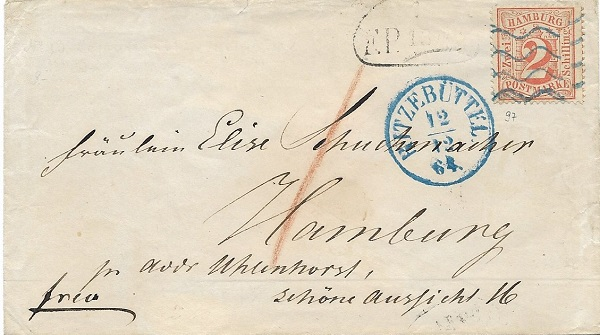 HAMBURG
Zwei 2 Schilling
POSTMARKE
RITZEBÜTTEL
12
12
64
97
Fräulein Elise Schuhmacher
Hamburg
pr Addr Uhlenhorst,
schöne Aussicht 16
frco